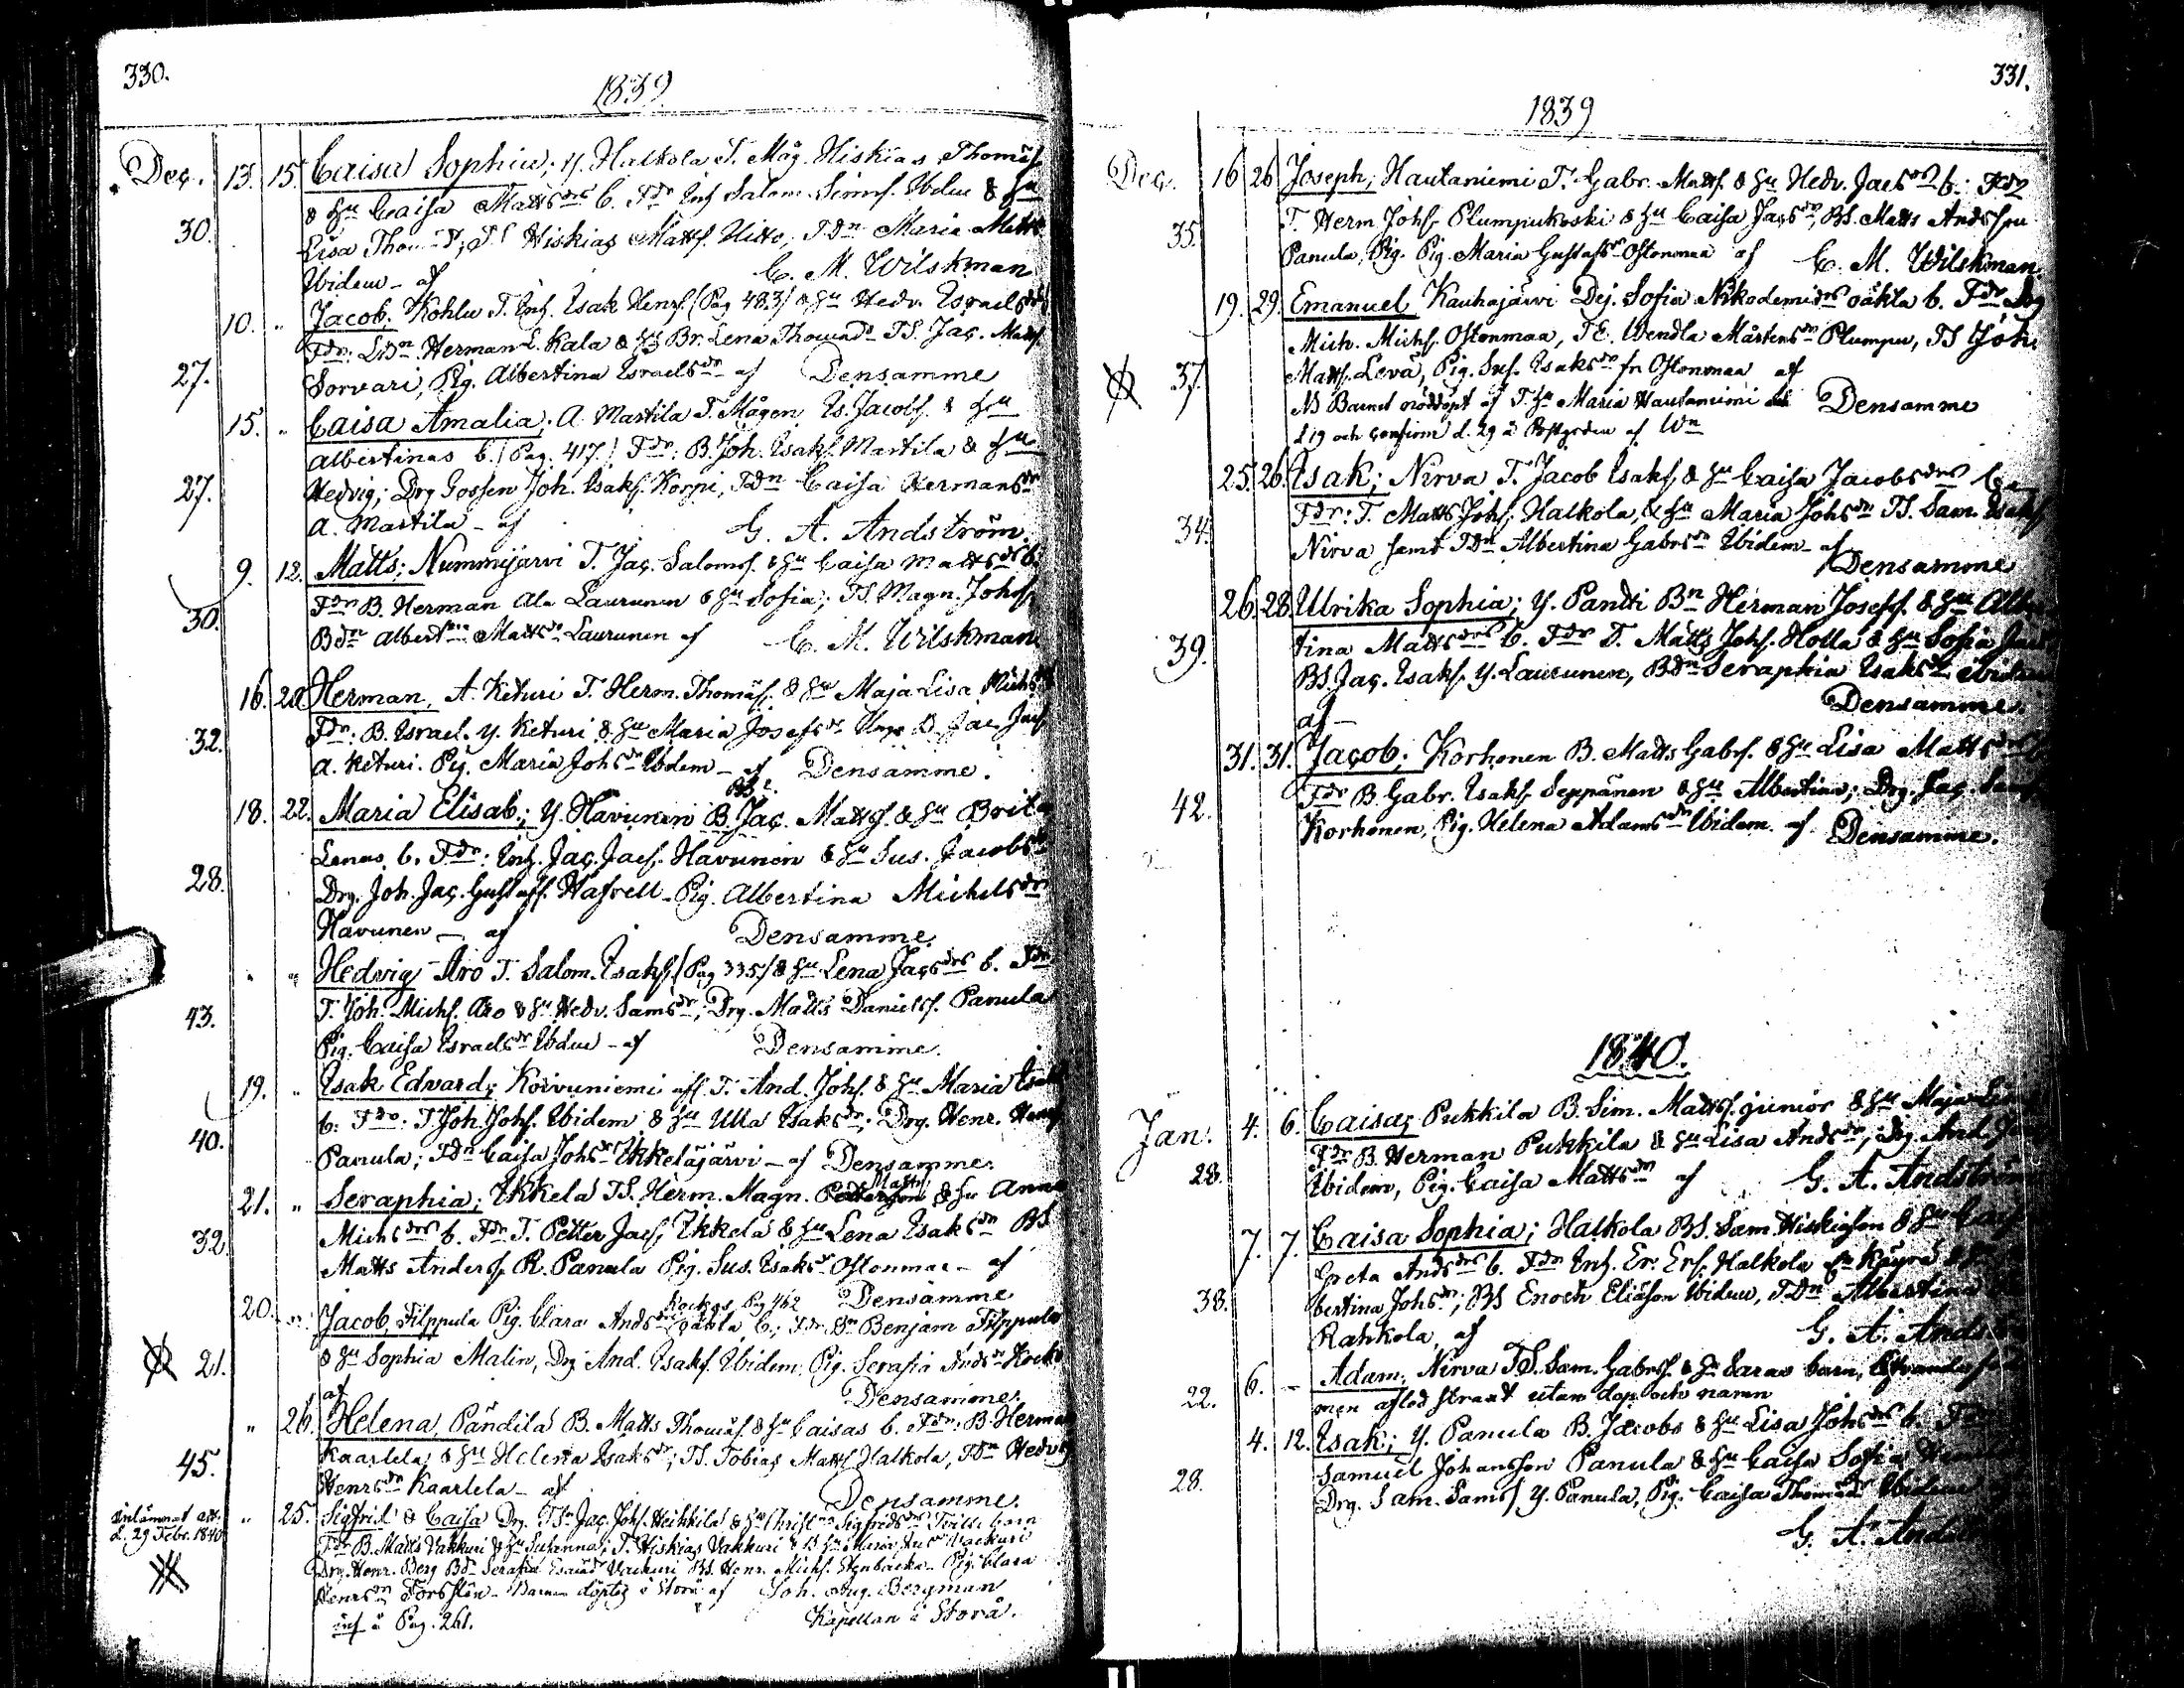 330.
1839
Dec. 13. 15. Caisa Sophia; Y. Halkola T. Måg. Hiskias Thomæs.
& Hu Caisa Mattsdrs b. Fdr Inh Salom. Simns. Ibdm & Hu
30. Lisa Thom TS Hiskias Mattss. Hitto, TDn Maria Matts
Ibidem - af C. M. Wilskman
10. " Jacob; Kohlu T. Inh. Isak Henrs. (Pag 483) & Hu Hedv. Israelsdrs
Fdr: Herman L. Kala & Hu Br. Lena TS. Jac. Matts.
27. Sorvari, Pig. Albertina Israelsdr af Densamme
15. " Caisa Amalia; A. Martila T. Mågen Is. Jacobs. & Hu
Albertinas b. (Pag. 417.) Fdr: B. Joh. Isaks. Martila & Hu
27. Hedvig; Drg Gossen Joh. Isaks. Korpi, TDn Caisa Hermansdr
A. Martila - af G. A. Andström.
9. 12. Matts; Nummijärvi T. Jac. Saloms. & Hu Caisa Mattsdrs b.
30. Fdr B. Herman Ala Laurunen & Hu Sofia; TS. Magn. Johss.
BDn Albertina Mattsdr Laurunen af C. M. Wilskman.
16. 20 Herman, A. Keturi T. Herm. Thomæs. & Hu Maja Lisa Michsdrs
32. Fdr: B. Israel Y. Keturi & Hu Maria Josefsdr Jac Jacs
A. Keturi. Pig. Maria Johsdr Ibdem - af Densamme.
18. 22. Maria Elisab.; Y. Havunen B. Jac. Mattss. & Hu Brita
Lenas b. Fdr: Inh. Jac. Jacs. Havunen & Hu Sus. Jacobsdr
28. Drg. Joh. Jac. Gustafs. Hafrell - Pig. Albertina Michelsdr
Havunen - af Densamme.
" " Hedvig Aro T. Salom. Isaks. (Pag 335) & Hu Lena Jacsdrs b. Fdr
43. T. Joh. Michs. Aro & Hu Hedv. Samsdr; Drg. Matts Daniels. Panula
Pig. Caisa Israelsdr Ibdm - af Densamme.
19. " Isak Edvard; Koivuniemi T. And. Johs. & Hu Maria Isaksdrs
b: Fdr: T Joh. Johs. Ibidem & Hu Ulla Isaksdr; Drg. Henr. Henrs
40. Panula; TDn Caisa Johsdr Ikkeläjärvi - af Densamme.
21. " Seraphia; Ikkelä TS. Herm. Magn. Mattss. & Hu Anna
Michsdrs b. Fdr T. Petter Jacs. Ikkelä & Hu Lena Isaksdr BS
32. Matts Anderss. R. Panula Pig. Sus. Isaksdr Ostonmaa - af
Densamme
20. " Jacob, Filppula Pig. Clara Andsdrs Kockos Pag 462 oäkta b; Fdr Bn Benjam Filppula
21. & Hu Sophia Malin, Drg And. Isaks. Ibidem. Pig. Serafia Andsdr Kocko
af Densamme.
" 26. Helena, Pändilä B. Matts Thomæs. & Hu Caisas b. Fdr: B. Herman
45. Kaarlela & Hu Helena Isaksdr; TS. Tobias Mattss Halkola, TDn Hedvig
Henrsdr Kaarlela - af Densamme.
Inlämnat att.
d. 29 Febr. 1840
" 25. Sigfrid & Caisa Drg. TSn Jac. Johs. Heikkilä & Hu Christina Sigfredsdrs Tvill. barn
Fdr B. Matts Vakkuri & Hu Susanna; T. Hiskias Vakkuri & Hu Maria Vackuri
Drg. Henr. Berg BDr Serafia Esaiædr Vackuri BS. Henr. Michs. Stenbacka Pig. Clara
Henrsdr Forsstén - Barnen döptes i Storå af Joh. Aug. Bergman
inf å Pag. 261. Kapellan i Storå.
331.
1839
Dec. 16 26 Joseph; Hautaniemi T. Gabr. Mattss. & Hu Hedv. Jacsdrs b: Fdr
35. T. Herm. Johs. Plumpukoski & Hu Caisa Jacsdr, BS. Matts Andsson
Panula, Pig. Maria Gustafsdr Ostonmaa af C. M. Wilskman.
19. 29. Emanuel Kauhajärvi Dej. Sofia Nikodemidrs oäkta b. Fdr Drg
Mich. Michs. Ostonmaa, TE. Wendla Mårtensdr Plumpu, TS Joh.
37. Mattss. Levä, Pig. Sus. Isaksdr fr Ostonmaa af
NB Barnet nöddöpt af T. Hu Maria Hautaniemi Densamme
d 19 och confirm d. 29 å Prstgrden af Wn
25. 26. Isak; Nirva T. Jacob Isaks. & Hu Caisa Jacobsdrs b.
34. Fdr: T. Matts Johs. Halkola, & Hu Maria Johsdr TS. Sam. Isaks
Nirva samt TDn Albertina Gabrsdr Ibidem - af
Densamme
26. 28. Ulrika Sophia; Y. Pandti Bn Herman Josefs. & Hu Alber-
39. tina Mattsdrs b. Fdr T. Matts Johs. Holla & Hu Sofia
BS. Jac. Isaks. Y. Laurunen, BDn Seraphia Isaksdr Ibidem
af - Densamme.
31. 31. Jacob; Korhonen B. Matts Gabrs. & Hu Lisa Mattsdrs
42. Fdr B. Gabr. Isaks. Seppänen & Hu Albertina; Drg. Jac. Sams.
Korhonen, Pig. Helena Adamsdr Ibidem. af Densamme.
1840.
Jan. 4. 6. Caisa; Pukkila B. Sim. Mattss. junior & Hu Maja Lisas
28. Fdr B. Herman Pukkila & Hu Lisa Andsdr; Drg. And.
Ibidem, Pig. Caisa Mattsdr af G. A. Andström
7. 7. Caisa Sophia; Halkola BS. Sam. Hiskiæson & Hu Caisa
Greta Andsdrs b. Fdr Inh. Er. Ers. Halkola fr Käyrä & Hu
38. bertina Johsdr; BS Enoch Eliæson Ibidem, TDn Albertina
Rahkola, af G. A. Andström
22. 6. - Adam; Nirva TS. Sam. Gabrss. & Hu Saras barn,
men afled straxt utan dop och namn
4. 12. Isak; Y. Panula B. Jacobs & Hu Lisa Johsdrs b. Fdr
28. Samuel Johansson Panula & Hu Caisa Sofia
Drg. Sam. Samss Y. Panula, Pig. Caisa Thomædr Ibidem
G. A. Andström